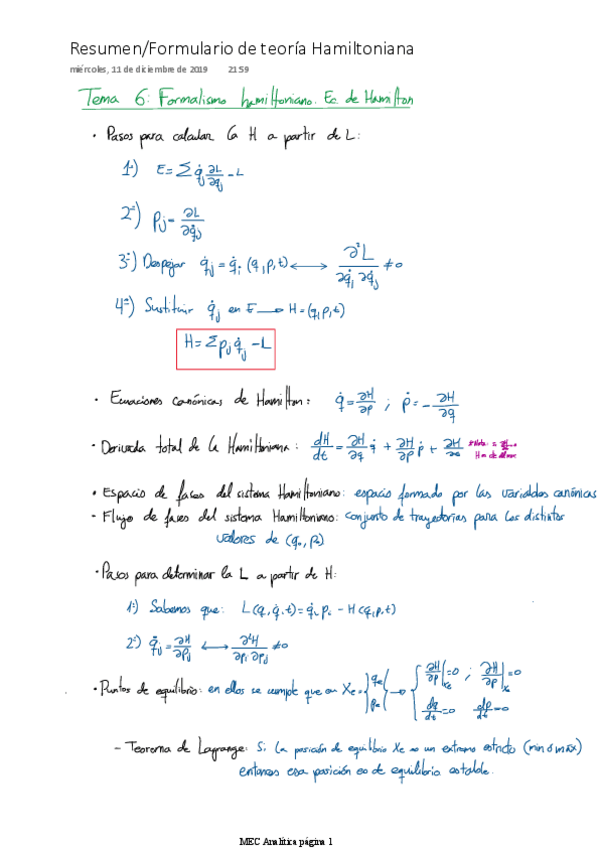 Resumen/Formulario de teoría Hamiltoniana
miércoles, 11 de diciembre de 2019 21:59
Tema 6: Formalismo hamiltoniano. Ec. de Hamilton
• Pasos para calcular la H a partir de L:
1º) E = Σ q̇j ∂L/∂q̇j - L
2º) pj = ∂L/∂q̇j
3º) Despejar q̇j = q̇j (q,p,t) ⟷ ∂²L/∂q̇i ∂q̇j ≠ 0
4º) Sustituir q̇j en E → H = (q,p,t)
H = Σ pj q̇j - L
• Ecuaciones canónicas de Hamilton: q̇ = ∂H/∂p ; ṗ = - ∂H/∂q
• Derivada total de la Hamiltoniana: dH/dt = ∂H/∂q q̇ + ∂H/∂p ṗ + ∂H/∂t *Nota:
• Espacio de fases del sistema Hamiltoniano: espacio formado por las variables canónicas
- Flujo de fases del sistema Hamiltoniano: conjunto de trayectorias para los distintos
valores de (q₀, p₀)
• Pasos para determinar la L a partir de H:
1º) Sabemos que: L(q,q̇,t) = q̇·p· - H(q,p,t)
2º) q̇j = ∂H/∂pj ⟷ ∂²H/∂pi ∂pj ≠ 0
• Puntos de equilibrio: en ellos se cumple que en Xe = {qe pe} → { ∂H/∂p|Xe = 0 ; ∂H/∂p|Xe = 0
dq/dt = 0 dp/dt = 0
- Teorema de Lagrange: Si la posición de equilibrio Xe es un extremo estricto (min ó máx)
entonces esa posición es de equilibrio estable.
MEC Analítica página 1